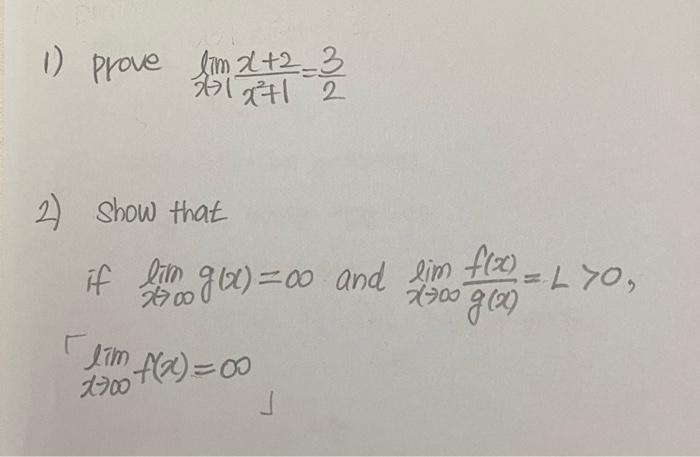 1) prove lim x→1 x+2/x²+1 = 3/2
2) show that
if lim x→∞ g(x) = ∞ and lim x→∞ f(x)/g(x) = L > 0,
「lim x→∞ f(x) = ∞」